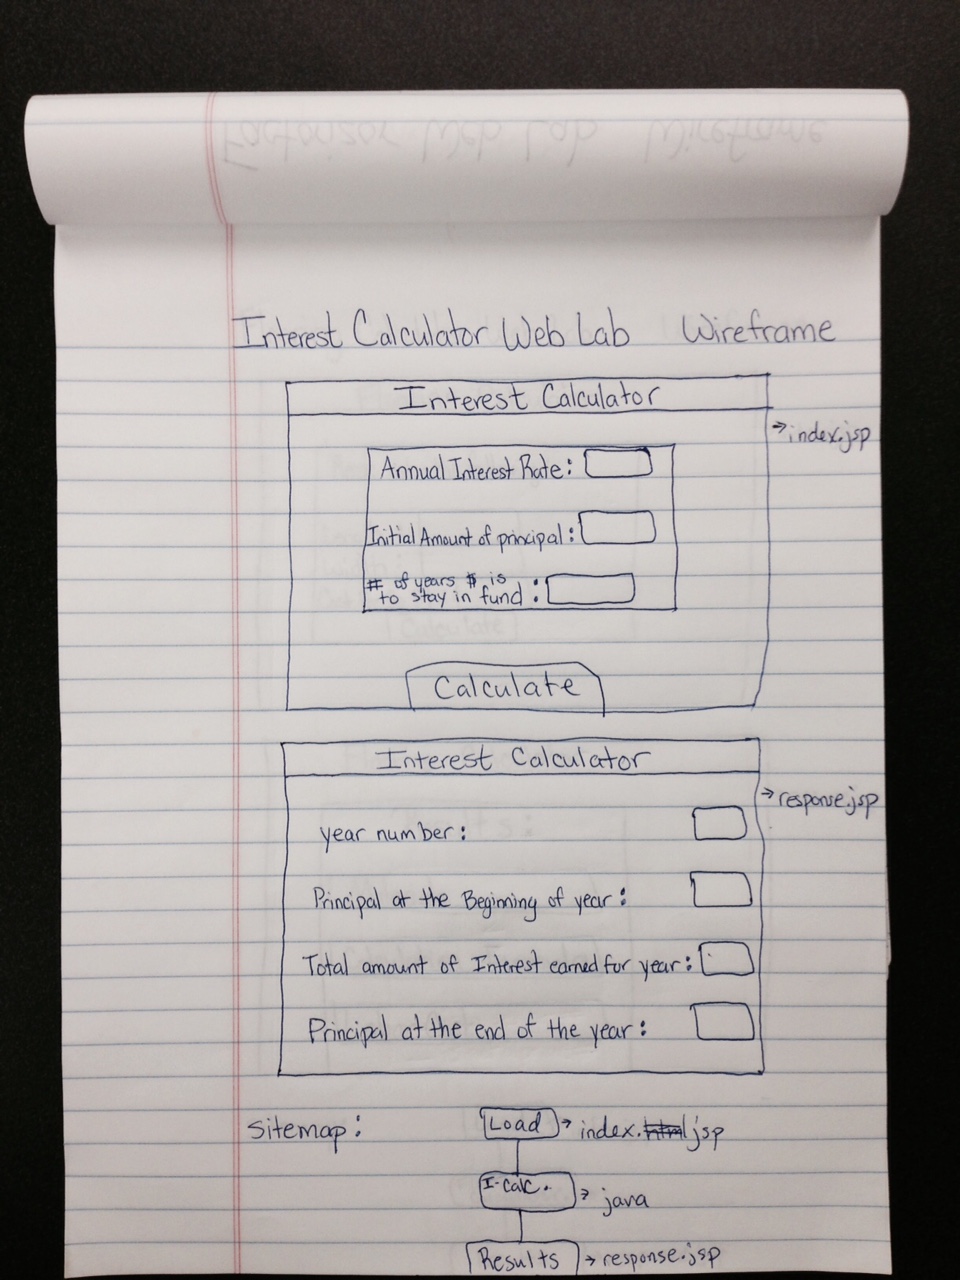 Factorizor Web Lab Wireframe
Interest Calculator Web Lab Wireframe
Interest Calculator
→ index.jsp
Annual Interest Rate:
Initial Amount of principal:
# of years $ is
to stay in fund :
Calculate
Interest Calculator
→ response.jsp
year number:
Principal at the Beginning of year:
Total amount of Interest earned for year:
Principal at the end of the year:
Sitemap:
Load → index.html jsp
I-calc. → java
Results → response.jsp